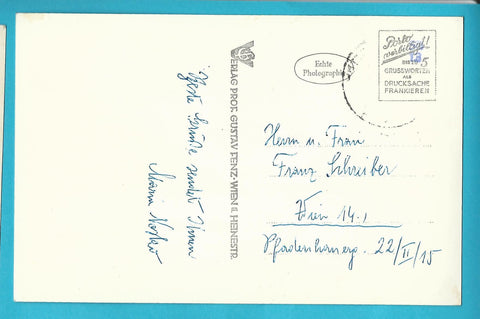 Beste Grüße sendet Ihnen
Maria
VERLAG PROF. GUSTAV FENZ-WIEN II. HEINESTR.
Echte
Photographie
Porto
verbilligt!
BIS ZU 5
GRUSSWORTEN
ALS
DRUCKSACHE
FRANKIEREN
Herrn u. Frau
Franz Schreiber
Wien 14.,
22/II/15